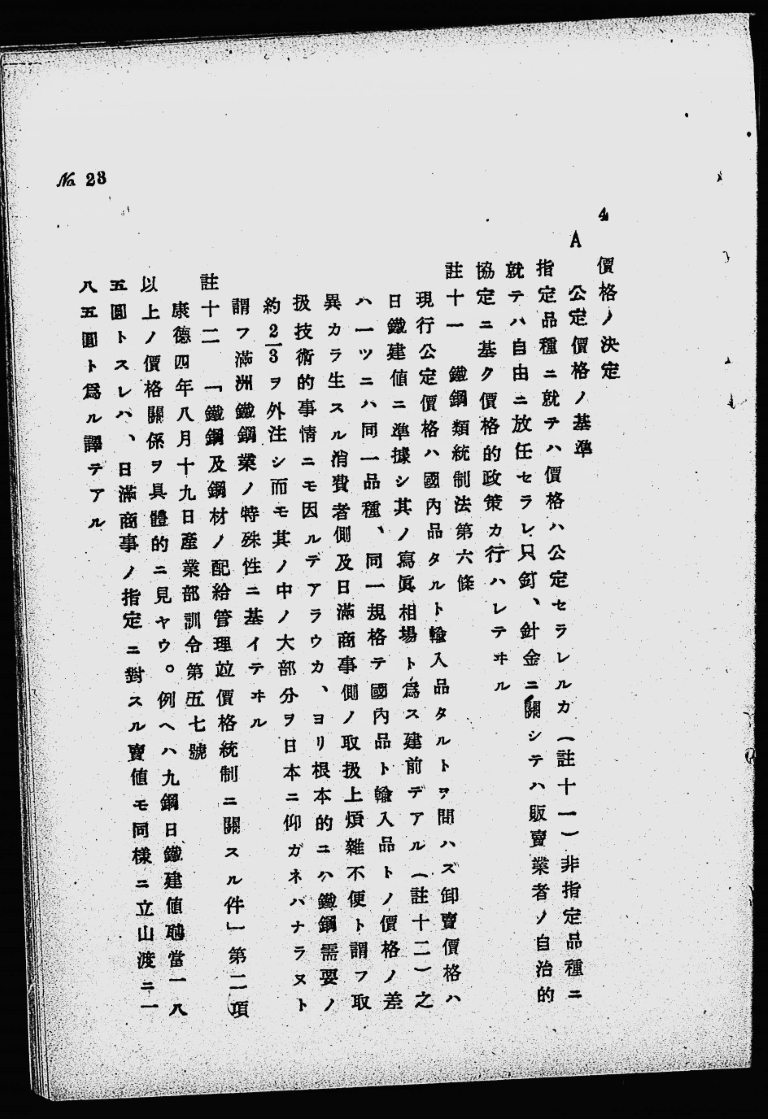 No. 23
4 價格ノ決定
A 公定價格ノ基準
指定品種ニ就テハ價格ハ公定セラレルカ（註十一）非指定品種ニ
就テハ自由ニ放任セラレ只釘、針金ニ關シテハ販賣業者ノ自治的
協定ニ基ク價格的政策カ行ハレテヰル
註十一 鐵鋼類統制法第六條
現行公定價格ハ國內品タルト輸入品タルトヲ問ハズ卸賣價格ハ
日鐵建値ニ準據シ其ノ寫眞相場ト爲ス建前デアル（註十二）之
ハ一ツニハ同一品種、同一規格テ國內品ト輸入品トノ價格ノ差
異カラ生スル消費者側及日滿商事側ノ取扱上煩雜不便ト謂フ取
扱技術的事情ニモ因ルデアラウカ、ヨリ根本的ニハ鐵鋼需要ノ
約2/3ヲ外注シ而モ其ノ中ノ大部分ヲ日本ニ仰ガネバナラヌト
謂フ滿洲鐵鋼業ノ特殊性ニ基イテヰル
註十二 「鐵鋼及鋼材ノ配給管理竝價格統制ニ關スル件」第二項
康德四年八月十九日產業部訓令第五七號
以上ノ價格關係ヲ具體的ニ見ヤウ。例ヘハ九鋼日鐵建値瓲當一八
五圓トスレハ、日滿商事ノ指定ニ對スル賣値モ同樣ニ立山渡ニ一
八五圓ト爲ル譯テアル